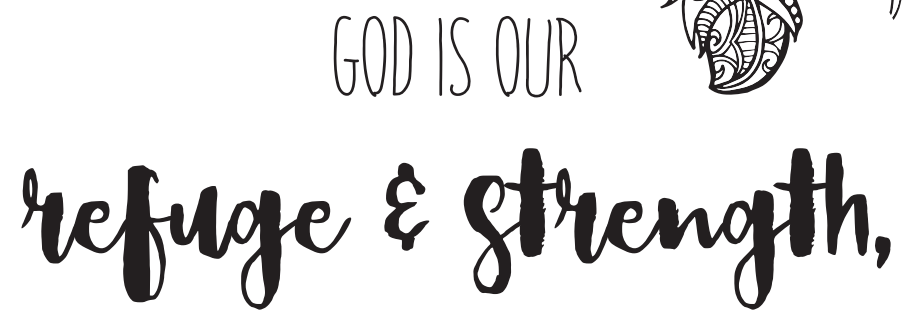 GOD IS OUR
refuge & strength,